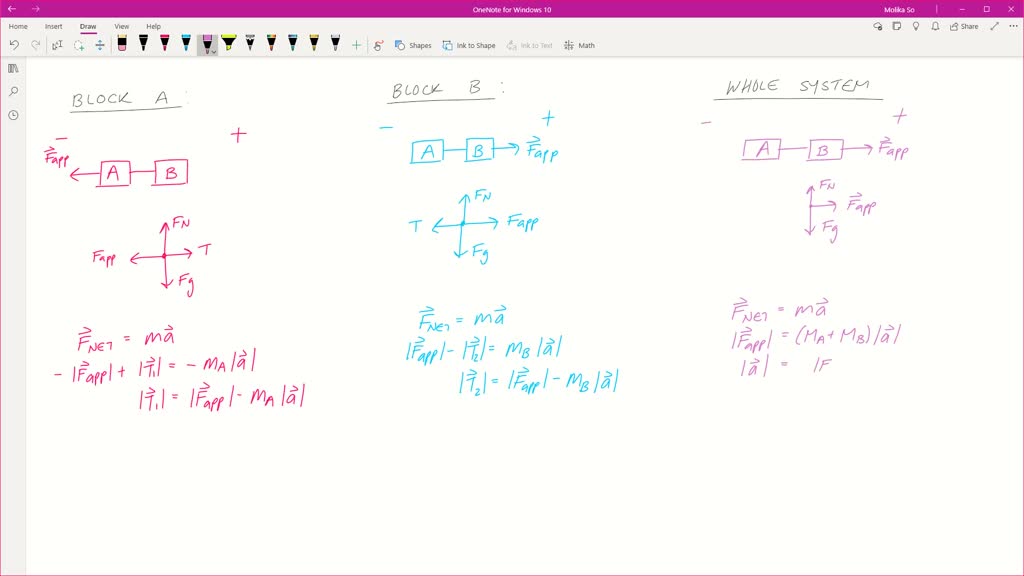 OneNote for Windows 10
Molika So
Home Insert Draw View Help
Share
Shapes Ink to Shape Ink to Text Math
BLOCK A :
− +
F⃗app
A B
FN
Fapp T
Fg
F⃗NET = ma⃗
− |F⃗app| + |T⃗1| = − MA |a⃗|
|T⃗1| = |F⃗app| − MA |a⃗|
BLOCK B :
− +
A B F⃗app
FN
T Fapp
Fg
F⃗NET = ma⃗
|F⃗app| − |T⃗2| = MB |a⃗|
|T⃗2| = |F⃗app| − MB |a⃗|
WHOLE SYSTEM
− +
A B F⃗app
FN
F⃗app
Fg
F⃗NET = ma⃗
|F⃗app| = (MA + MB) |a⃗|
|a⃗| = |F